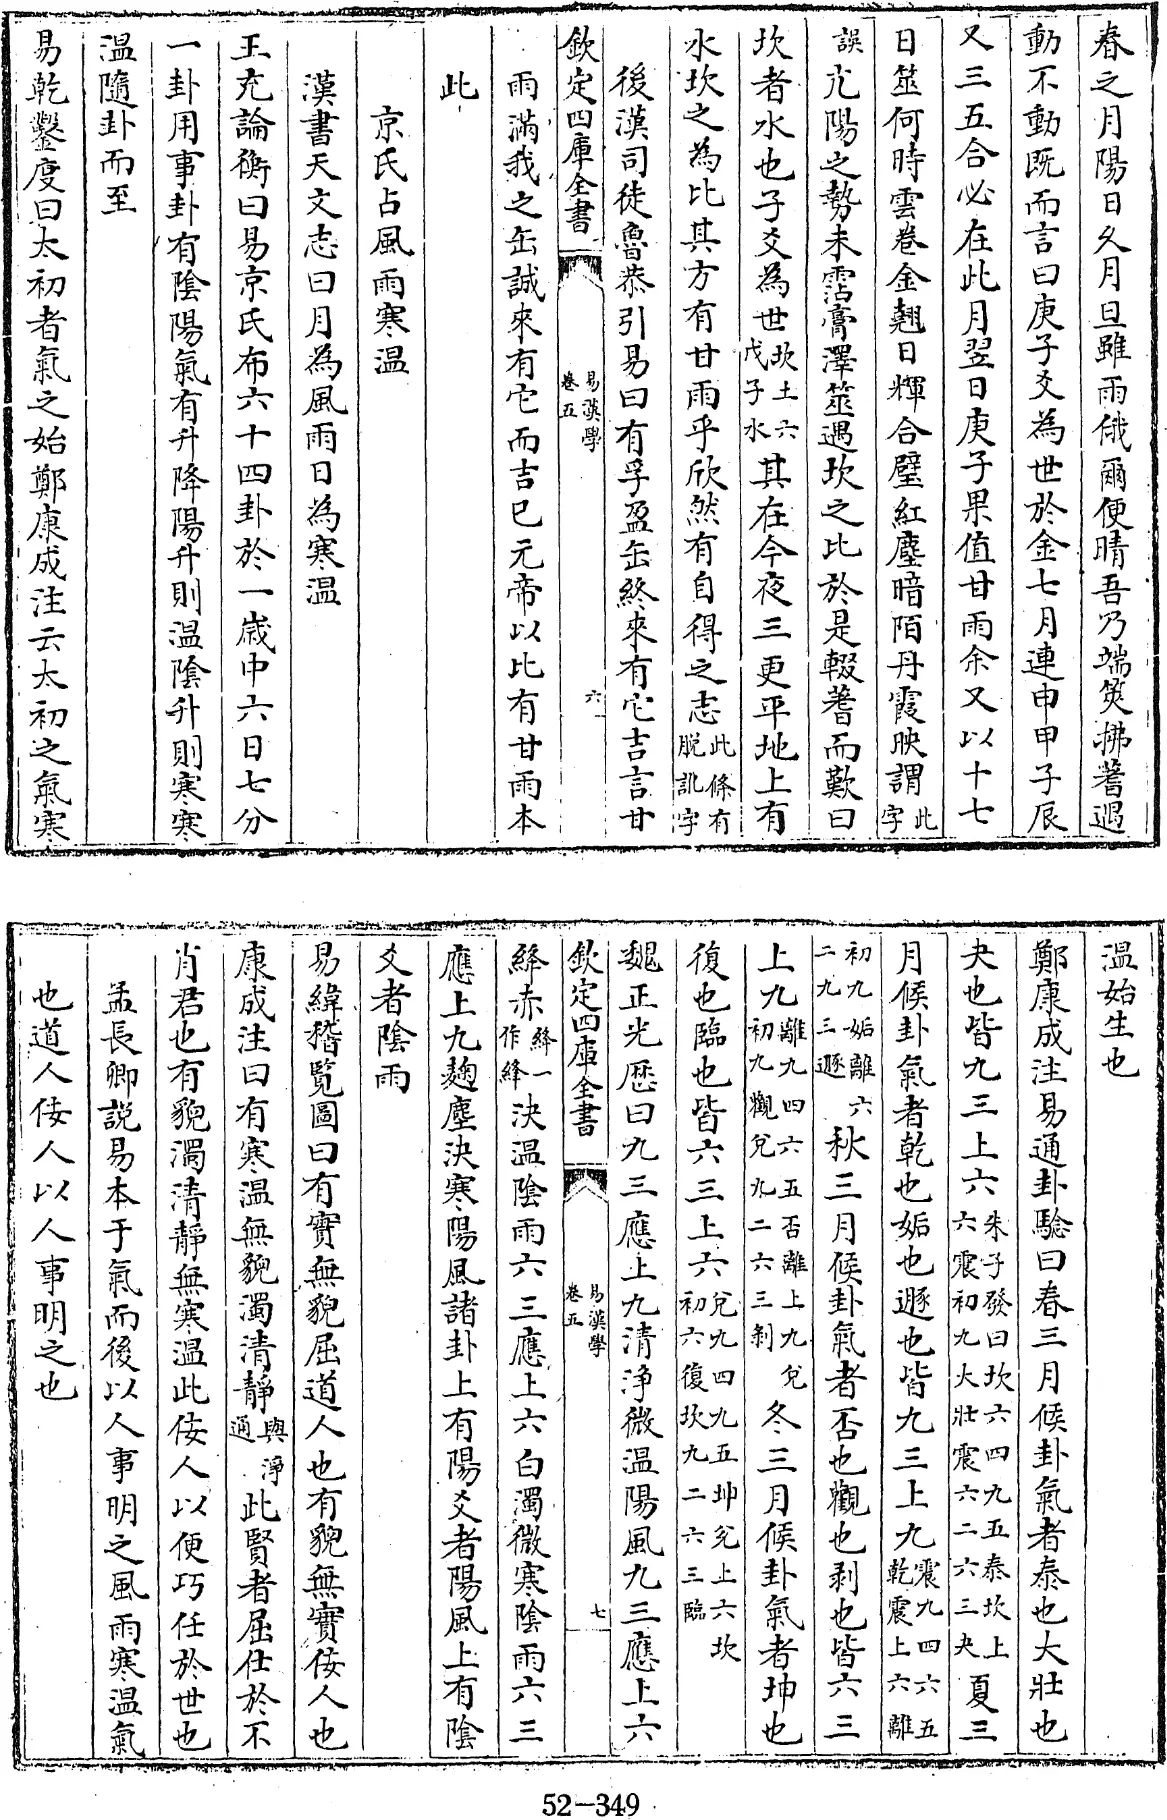 春之月陽日久月旦雖雨俄爾便晴吾乃端筴拂蓍遇
動不動既而言曰庚子爻為世於金七月連申甲子辰
又三五合必在此月翌日庚子果值甘雨余又以十七
日筮何時雲卷金翹日輝合璧紅塵暗陌丹霞映謂此字
誤亢陽之勢未霑膏澤筮遇坎之比於是輟蓍而歎曰
坎者水也子爻為世坎土六戊子水其在今夜三更平地上有
水坎之為比其方有甘雨乎欣然有自得之志此條有脫訛字
後漢司徒魯恭引易曰有孚盈缶終來有它吉言甘
欽定四庫全書
易漢學
卷五
六
雨滿我之缶誠來有它而吉已元帝以比有甘雨本
此
京氏占風雨寒温
漢書天文志曰月為風雨日為寒温
王充論衡曰易京氏布六十四卦於一歳中六日七分
一卦用事卦有陰陽氣有升降陽升則温陰升則寒寒
温隨卦而至
易乾鑿度曰太初者氣之始鄭康成注云太初之氣寒
温始生也
鄭康成注易通卦驗曰春三月候卦氣者泰也大壯也
夬也皆九三上六朱子發曰坎六四九五泰坎上六震初九大壯震六二六三夬夏三
月候卦氣者乾也姤也遯也皆九三上九震九四六五乾震上六離
初九姤離六二九三遯秋三月候卦氣者否也觀也剥也皆六三
上九離九四六五否離上九兌初九觀兌九二六三剥冬三月候卦氣者坤也
復也臨也皆六三上六兌九四九五坤兌上六坎初六復坎九二六三臨
魏正光厯曰九三應上九清淨微温陽風九三應上六
欽定四庫全書
易漢學
卷五
七
絳赤絳一作絳決温陰雨六三應上六白濁微寒陰雨六三
應上九麹塵決寒陽風諸卦上有陽爻者陽風上有陰
爻者陰雨
易緯稽覧圖曰有實無貌屈道人也有貌無實佞人也
康成注曰有寒温無貌濁清靜與淨通此賢者屈仕於不
肖君也有貌濁清靜無寒温此佞人以便巧任於世也
孟長卿説易本于氣而後以人事明之風雨寒温氣
也道人佞人以人事明之也
52-349